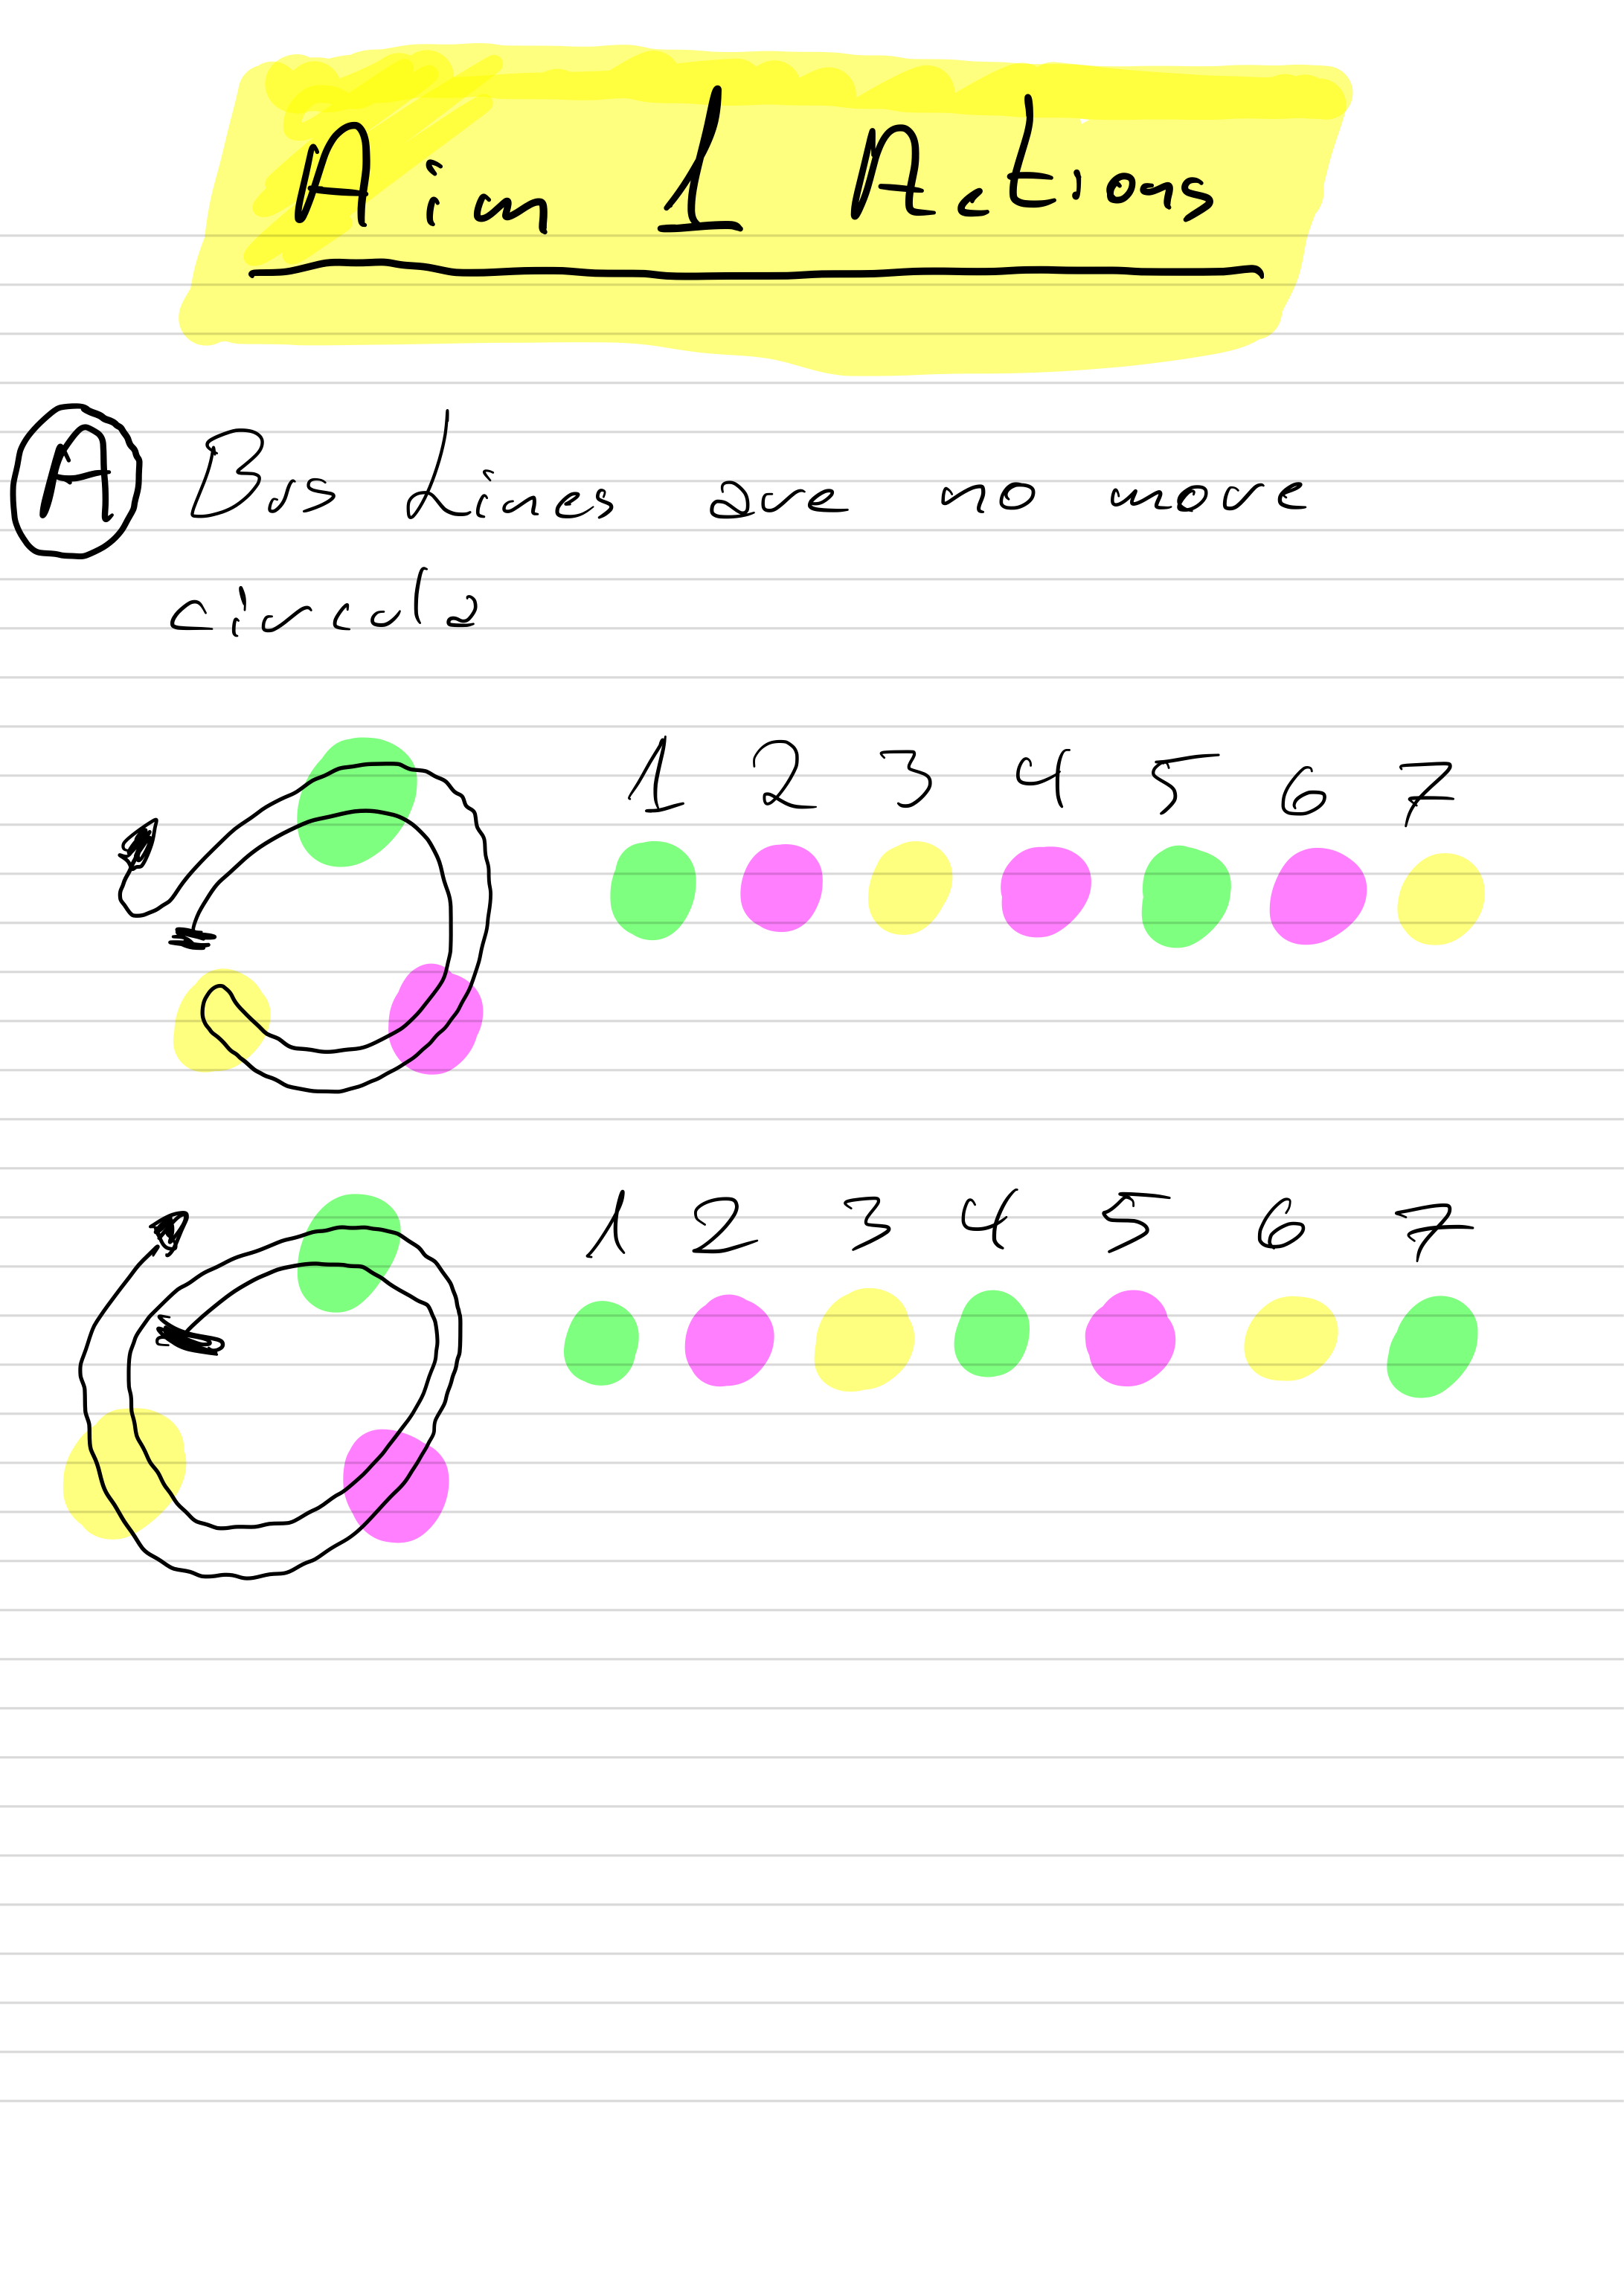 Aim 1 Actions
A Bus Lines are no more
circula
1 2 3 4 5 6 7
1 2 3 4 5 6 7